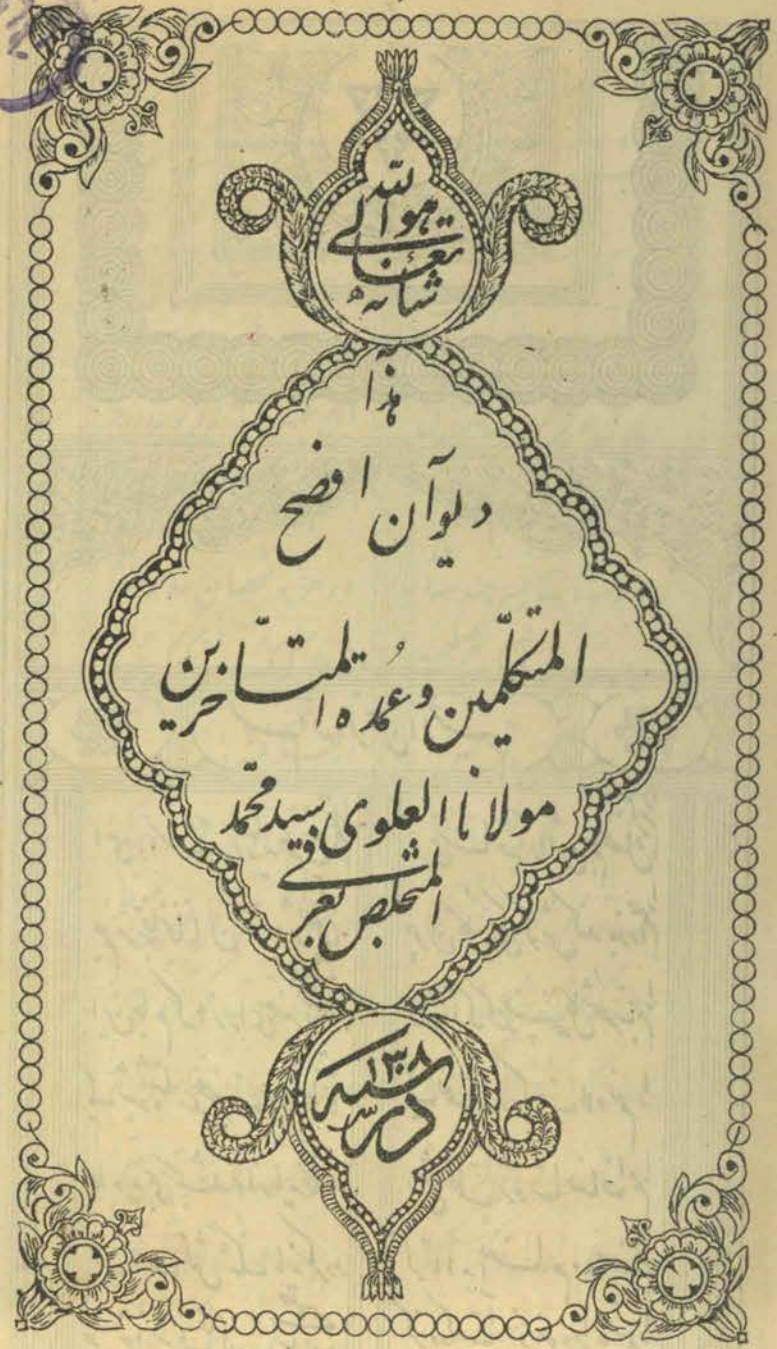 هو الله
تعالی
شانه
هذا
دیوان افصح
المتکلمین و عُمده المتاخرین
مولانا العلوی سید محمد
المتخلص بعرفی
در سنه ۱۳۰۸